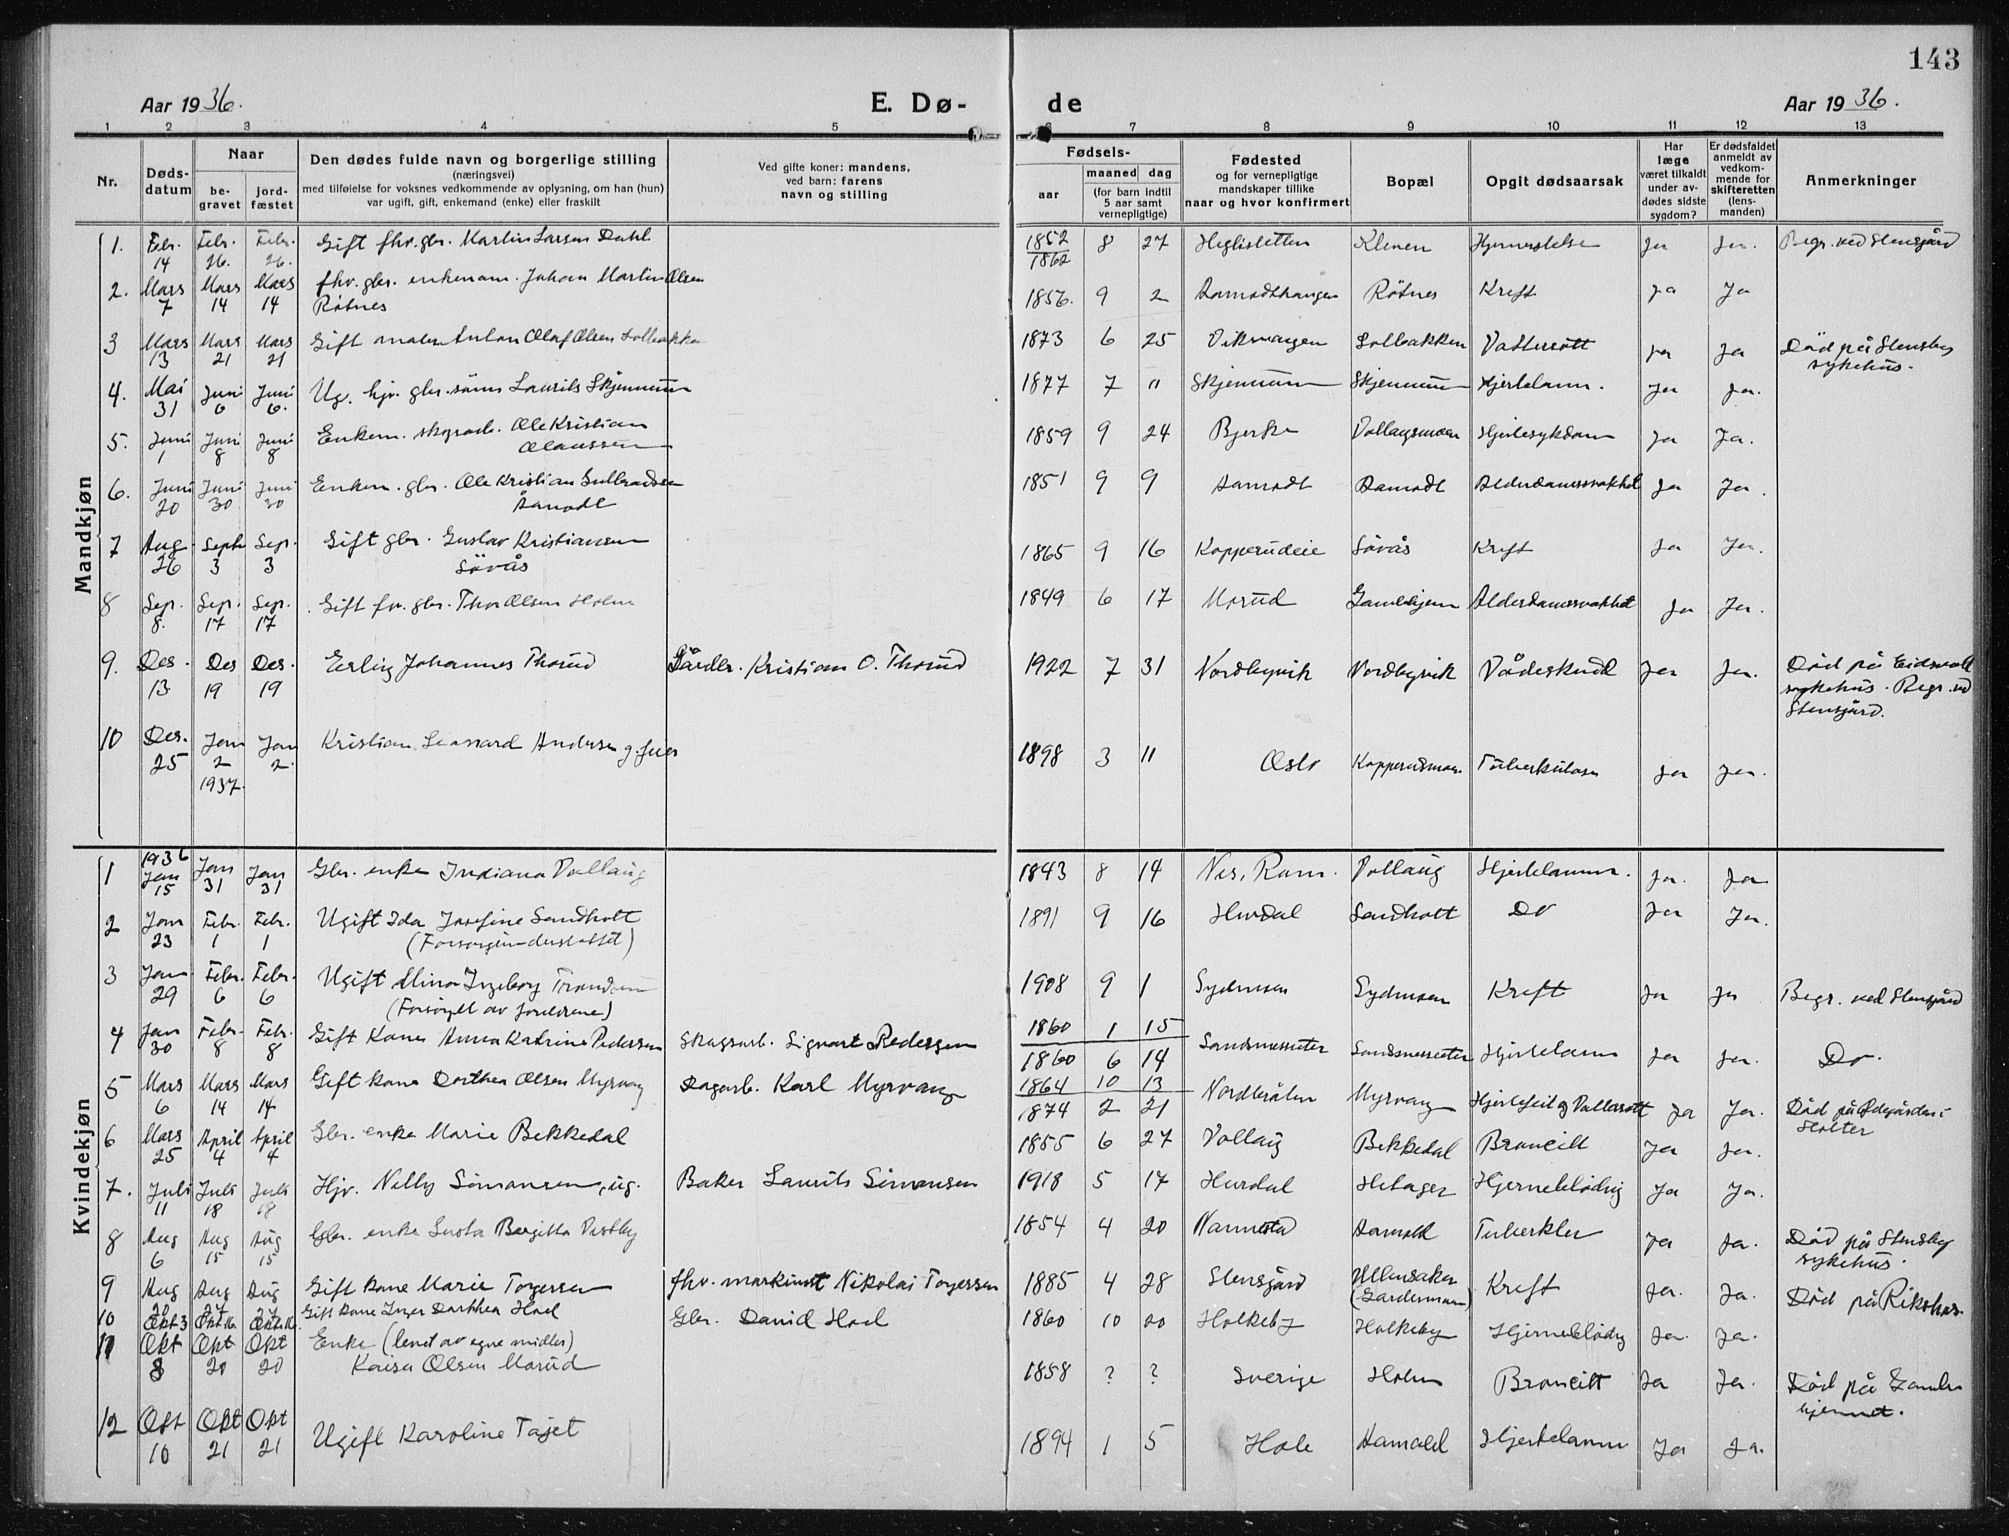 143
Aar 1936.
E. Dø-
de
Aar 1936.
1 2 3 4 5 6 7 8 9 10 11 12 13
Nr.
Døds-
datum
Naar
be-
gravet
jord-
fæstet
Den dødes fulde navn og borgerlige stilling
(næringsvei)
med tilføielse for voksnes vedkommende av oplysning, om han (hun)
var ugift, gift, enkemand (enke) eller fraskilt
Ved gifte koner: mandens,
ved barn: farens
navn og stilling
Fødsels-
aar
maaned dag
(for barn indtil
5 aar samt
vernepligtige)
Fødested
og for vernepligtige
mandskaper tillike
naar og hvor konfirmert
Bopæl
Opgit dødsaarsak
Har
læge
været tilkaldt
under av-
dødes sidste
sygdom?
Er dødsfaldet
anmeldt av
vedkom-
mende for
skifteretten
(lens-
manden)
Anmerkninger
Mandkjøn
1. Febr. 14 Febr. 26. Febr. 26. Gift fhv. gbr. Martin Larsen Dahl 1852 1862 8 27 Ja Ja. Begr. ved Stensgård
2. Mars 7 Mars 14 Mars 14 fhv. gbr. enkemam. Johan Martin Olsen
Røtnes 1856. 9 2 Røtnes Kreft Ja Ja
3 Mars 13 Mars 21 Mars 21 Gift maler Anton Olaf Olsen Solbakken 1873 6 25 Solbakken Ja Ja Död på Stensby
sykehus.
4. Mai 31 Juni 6 Juni 6. Ug. hjv. gbr. søns Laurits Skjennum 1877 7 11 Skjennum Skjennum Hjertelamn. Ja Ja.
5. Juni 1 Juni 8 Juni 8 Enkem. skogsarb. Ole Kristian
Olaussen 1859 9 24 Bjerke Hjertesykdom Ja Ja.
6. Juni 20 Juni 30 Juni 30 Enkem. gbr. Ole Kristian Gulbrandsen
Åamodt 1851 9 9 Aamodt Aamodt Alderdomssvakhet Ja Ja.
7 Aug. 26 Sept 3 Sep. 3 Gift gbr. Gustav Kristiansen
Sövås 1865 9 16 Kopperudeie Sövås Kreft Ja Ja.
8 Sep. 8. Sep. 17 Sep. 17 Gift fv. gbr. Thor Olsen Holm 1849 6 17 Morud Gamlehjem Alderdomssvakhet Ja Ja.
9. Des. 13 Des 19 Des. 19 Erling Johannes Thorud Gårdbr. Kristian O. Thorud 1922 7 31 Nordbyvik Nordbyvik Vådeskudd Ja Ja. Död på Eidsvoll
sykehus. Begr. ved
Stensgård.
10 Des. 25 Jan 2 1937. Jan 2. Kristian Lennard Andersen 1898 3 11 Oslo Kopperudmoen Tuberkulose Ja Ja.
Kvindekjøn
1 1936 Jan 15 Jan 31 Jan 31 Gbr. enke Indiana Vollaug 1843 8 14 Nes, Rom. Vollaug Hjertelamm. Ja. Ja
2 Jan 23 Febr. 1 Febr. 1 Ugift Ida Josefine Sandholt
1891 9 16 Hurdal Sandholt Do Ja Ja.
3 Jan 29 Febr. 6 Febr. 6 Ugift Mina Ingeborg
(Forsörget av foreldrene) 1908 9 1 Sydmoen Sydmoen Kreft Ja Ja Begr. ved Stensgård
4 Jan 30 Febr. 8 Febr. 8 Gift Kone Anna Katrine Pedersen Skogsarb. Sigvart Pedersen 1860 1 15
1860 6 14 Hjertelamm Ja Ja. Do.
5 Mars 6 Mars 14 Mars 14 Gift kone Dorthea Olsen Myrvang Dagarb. Karl Myrvang 1864 10 13
1874 2 21 Myrvang Hjertefeil og Vattersott Ja Ja. Död på Ödegården i
Holter
6 Mars 25 April 4 April 4 Gbr. enke Marie Bekkedal 1855 6 27 Vollaug Bekkedal Broncitt Ja Ja.
7. Juli 11 Juli 18 Juli 18 Hjv. Nelly Simonsen, ug. Baker Laurits Simonsen 1918 5 17 Hurdal Hjerneblödng Ja Ja.
8 Aug 6 Aug 15 Aug 15 Gbr. enke 1854 4 20 Nannestad Tuberkler Ja Ja. Död på Stensby
sykehus.
9 Aug 20 Aug 27 Aug 27 Gift kone Marie Torgersen fhv. Nikolai Torgersen 1885 4 28 Stensgård Ullensaker
(Gardermoen) Kreft Ja. Ja. Död på Rikshos.
10 Okt 3 Okt 16. Okt 16. Gift kone Inger Dorthea Hoel Gbr. David Hoel 1860 10 00 Holkeby Holkeby Hjerneblödng Ja. Ja.
11 Okt 8 Okt 20 Okt 20 Enke (levet av egne midler)
Kaisa Olsen Morud 1858 ? ? Sverige Holm Broncitt Ja Ja. Död på Gamle-
hjemmet.
12 Okt 10 Okt 21 Okt 21 Ugift Karoline Tajet 1894 1 5 Hole Hjertelamm Ja Ja.